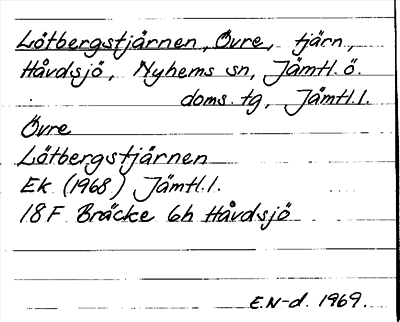 Lötbergstjärnen, Övre, tjärn,
Håvdsjö, Nyhems sn, Jämtl. ö.
doms. tg, Jämtl. l.
Övre
Lötbergstjärnen
Ek (1968) Jämtl. l.
18F Bräcke 6h Håvdsjö
E.N-d. 1969.